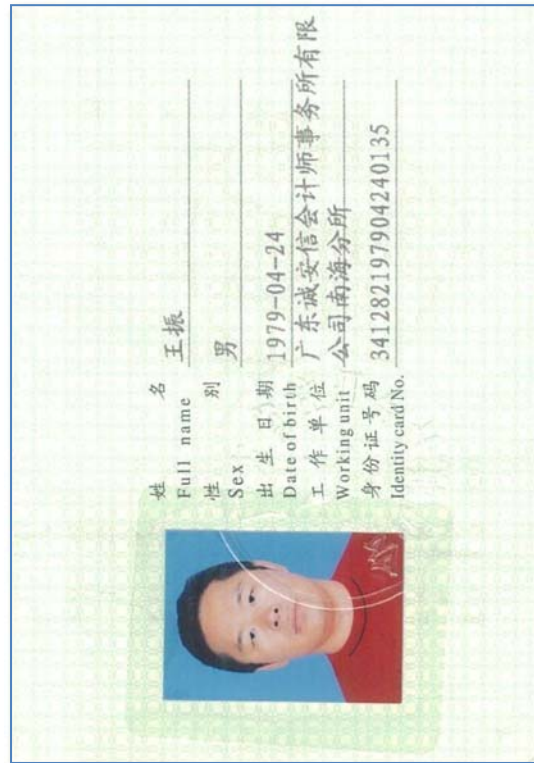 姓 名 王振
Full name
性 别 男
Sex
出生日期 1979-04-24
Date of birth
工作单位 广东诚安信会计师事务所有限
Working unit 公司南海分所
身份证号码 341282197904240135
Identity card No.